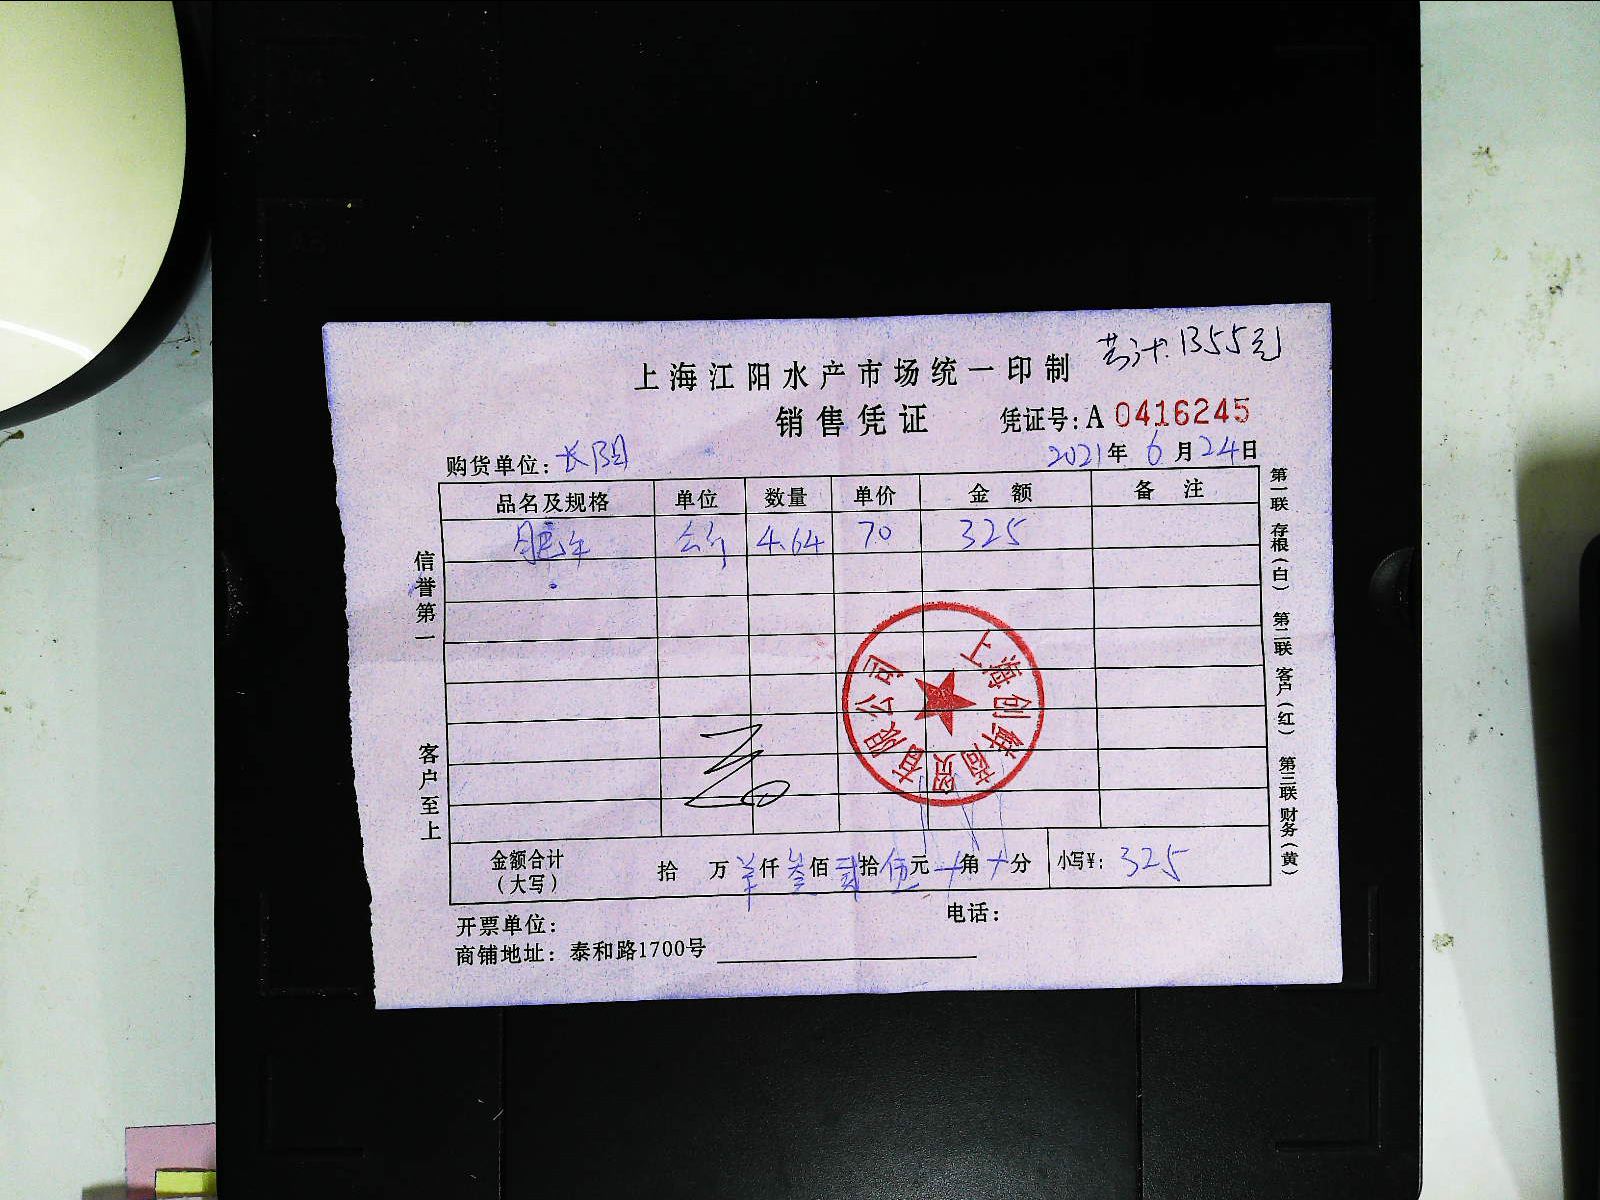 共计:1355元
上海江阳水产市场统一印制
销售凭证 凭证号:A 0416245
购货单位:长阳 2021年6月24日
品名及规格 单位 数量 单价 金额 备注
公斤 4.64 70 325
信誉第一
客户至上
第一联 存根(白) 第二联 客户(红) 第三联 财务(黄)
上海创鲜商贸有限公司
金额合计 拾万 仟叁佰贰拾伍元 角 分 小写¥:325
(大写)
开票单位: 电话:
商铺地址:泰和路1700号